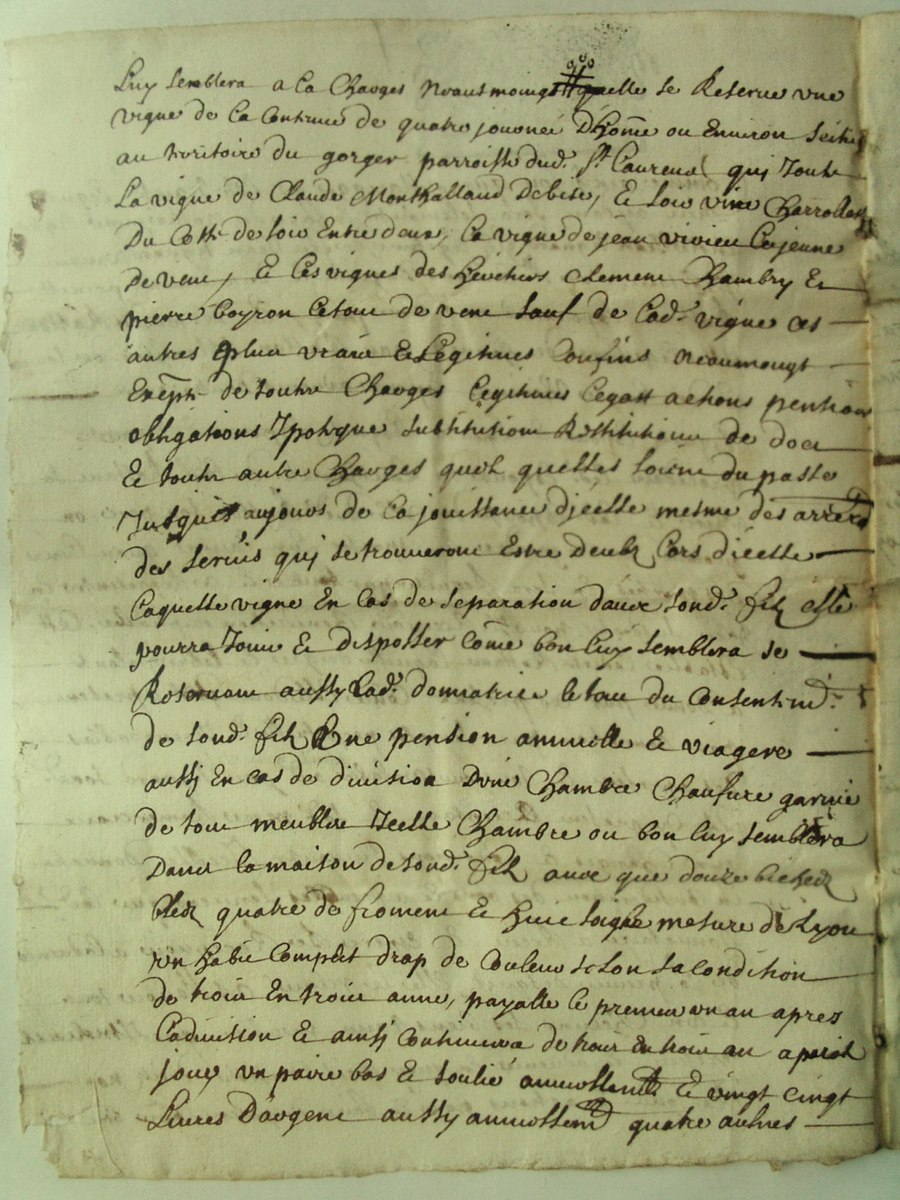 Luy semblera a la Charges neantmoings quelle se Reserve une
vigne de la Continue de quatre journée D'hom̃e ou Environ scitue
au territoire du gorger parroisse dud. St. Laurens qui Jouste
La vigne de Claude Monthalland De bise, & soir vigne
Du Cotte de soir Entre deux, la vigne de jean vivien Le jeune
De vent, & Les vignes des heritiers Clement Chambry &
pierre boyron le tout de vent sauf de lad. vigne les
autres plus vrais & Legitimes Confins neaumongt
de toutte Charges Legitimes Legatt actions pentions
obligations Ypoteque substitution Restitution de dot
& toutte autre Charges quelz quelles soient du passe
Jusques aujours de la jouissance d'jcelle mesme des arrera
des servis quj se trouveront Estre deubz Lors d'icelle
Laquelle vigne En Cas de separation dauec sond. filz elle
pourra Jouir & disposser Com̃e bon luy semblera se
Reservant aussy Lad. donnatrice le tout du Consentemt.
de sond. filz Une pension annuelle & viagere
aussj En cas de division Dvne Chambre Chaufure garnie
de tout meubles Jcelle Chambre ou bon luy semblera
Dans la maison de sond. filz avec que douze bichetz
bledz quatre de froment & huit soigle mesure de Lyon
vn habit Complet drap de Couleur selon sa Condition
de trois En trois anne, payable le premier vn an apres
La division & ainsj Continuera de trois En trois an apareil
jour vn paire bas & soulié annuellemt. & vingt cinqt
Livres D'argent aussy annuellemt. quatre aulnes